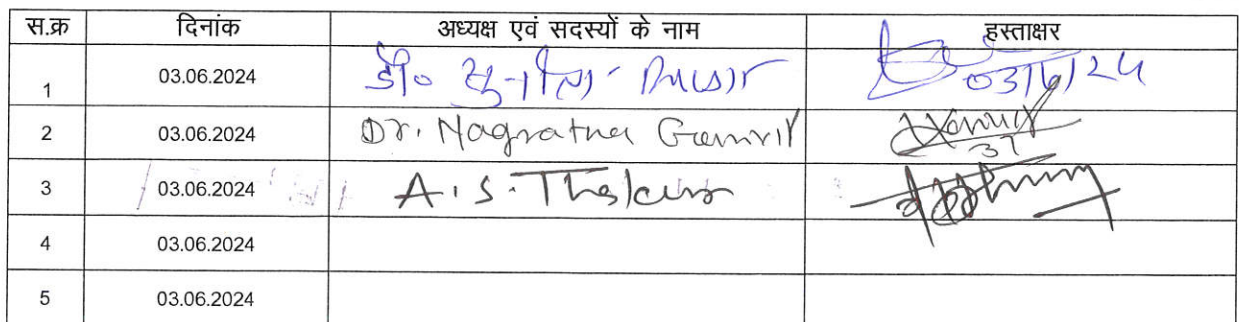 स.क्र दिनांक अध्यक्ष एवं सदस्यों के नाम हस्ताक्षर
1 03.06.2024 डॉ० 03/6/24
2 03.06.2024 Dr. Nagratna Ganvir
3 03.06.2024 A.S. Thakur
4 03.06.2024
5 03.06.2024